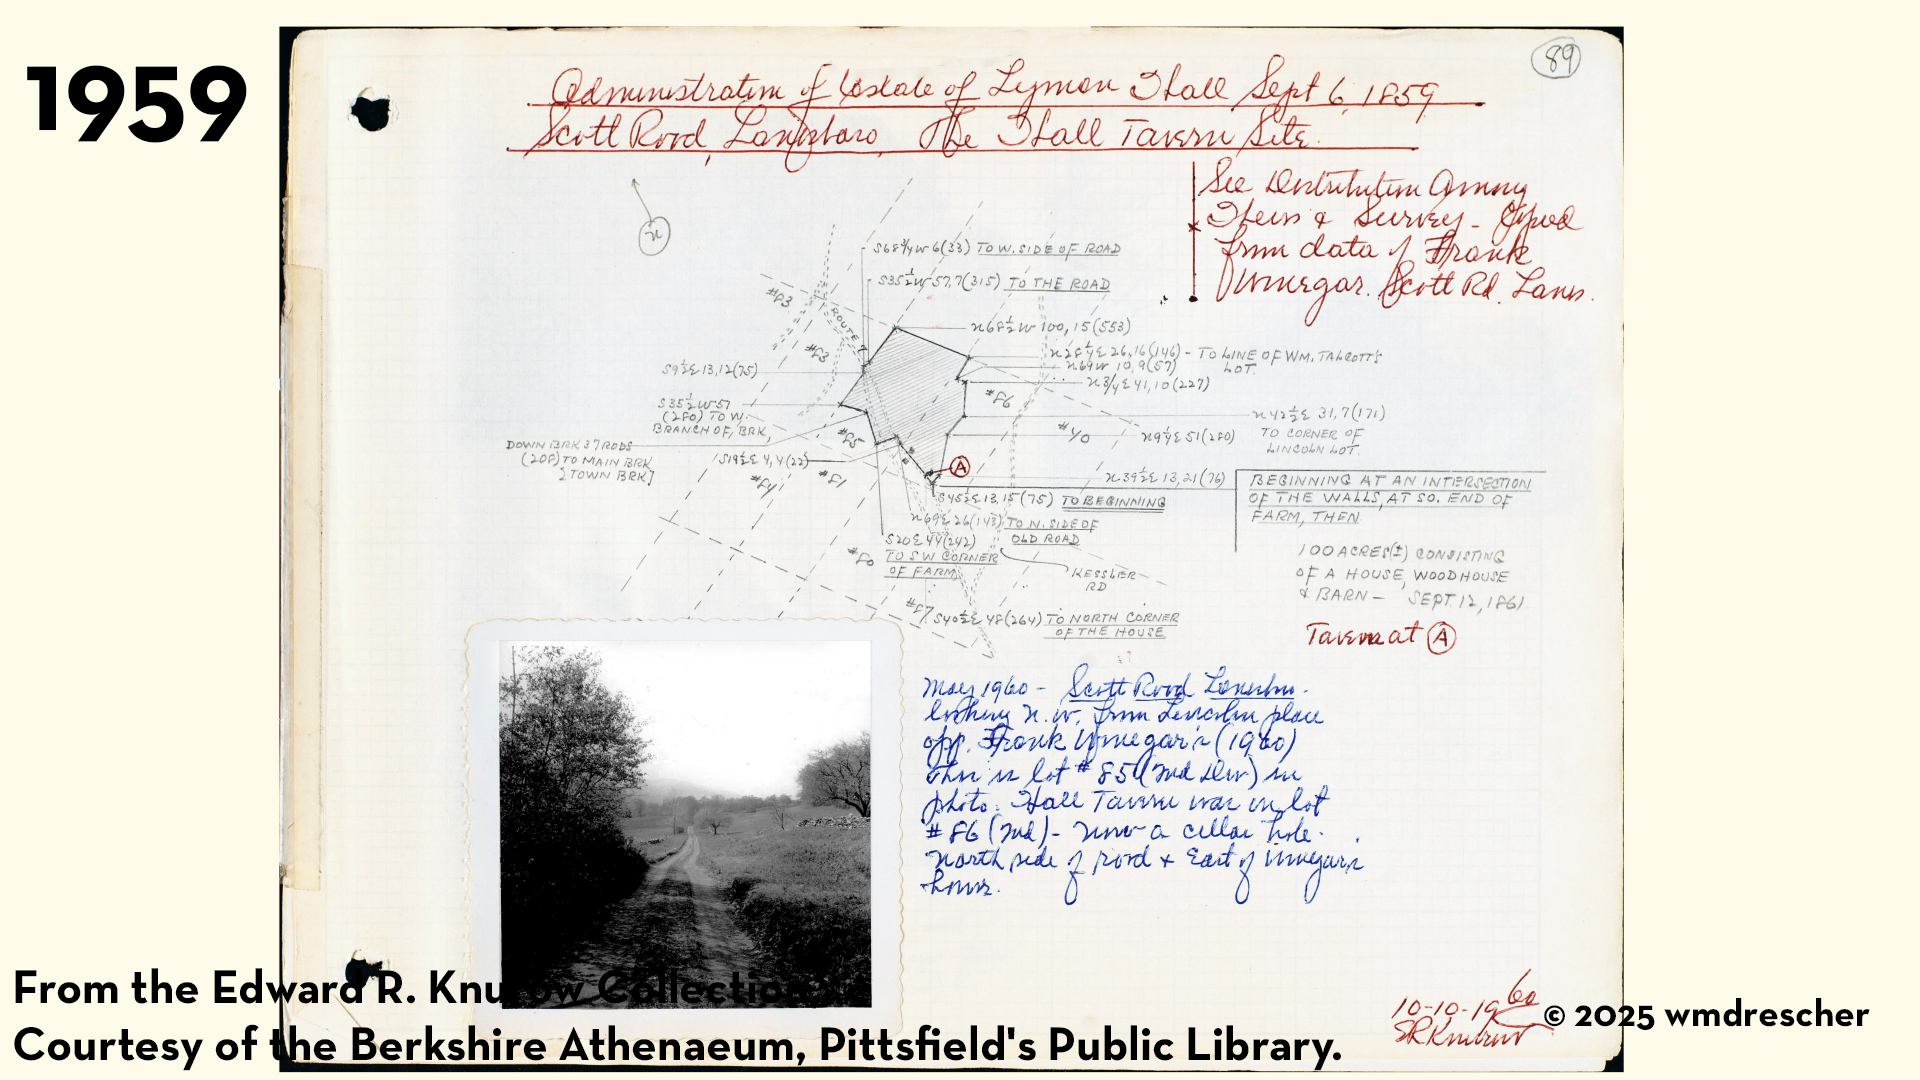 1959
89
Administration of Estate of Lyman Hall Sept 6, 1859
Scott Road, Lanesboro, The Hall Tavern Site.
See Distribution Among
Heirs & Survey - Copied
from data of Frank
Winegar. Scott Rd. Lanes.
N
S68¾W 6(33) TO W. SIDE OF ROAD
S35½W 57,7(315) TO THE ROAD
#83
ROUTE 7
#83
N68½W 100,15(553)
N28¼E 26,16(146) - TO LINE OF WM. TALCOTT'S
LOT.
N69W 10,9(57)
N3/4E 41,10(227)
S9½E 13,12(75)
S35½W51
(280) TO W.
BRANCH OF, BRK,
#86
N42½E 31,7(171)
TO CORNER OF
LINCOLN LOT.
#85
N9¼E 51(280)
DOWN BRK 37 RODS
(208) TO MAIN BRK
[TOWN BRK]
S19½E 4,4(22)
#81
A
N39½E 13,21(76)
S45½E 13,15(75) TO BEGINNING
BEGINNING AT AN INTERSECTION
OF THE WALLS, AT SO. END OF
FARM, THEN
N69E 26(143) TO N. SIDE OF
OLD ROAD
S20E 44(242)
TO SW CORNER
OF FARM
#80
KESSLER
RD
100 ACRES(±) CONSISTING
OF A HOUSE, WOODHOUSE
& BARN - SEPT 12, 1861
#87
S40½E 48(264) TO NORTH CORNER
OF THE HOUSE
Tavern at A
May 1960 - Scott Road Lanesboro.
looking N.W. from Lincoln place
opp. Frank Winegar's (1960)
This is lot #85 (2nd Div) in
photo. Hall Tavern was in lot
#86 (2nd) - now a cellar hole.
North side of road & East of Winegar's
house.
10-10-1960
ERKnurow
From the Edward R. Knurow Collection
Courtesy of the Berkshire Athenaeum, Pittsfield's Public Library.
© 2025 wmdrescher